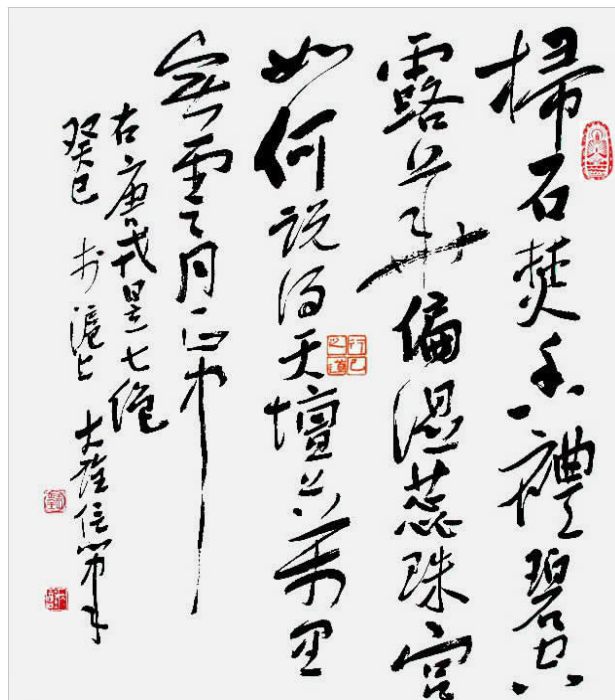 掃石焚香禮碧空
露華偏濕蕊珠宮
如何说得天壇上萬里
無雲月正中
右唐戎昱七绝
癸巳 於滬上
行己之道